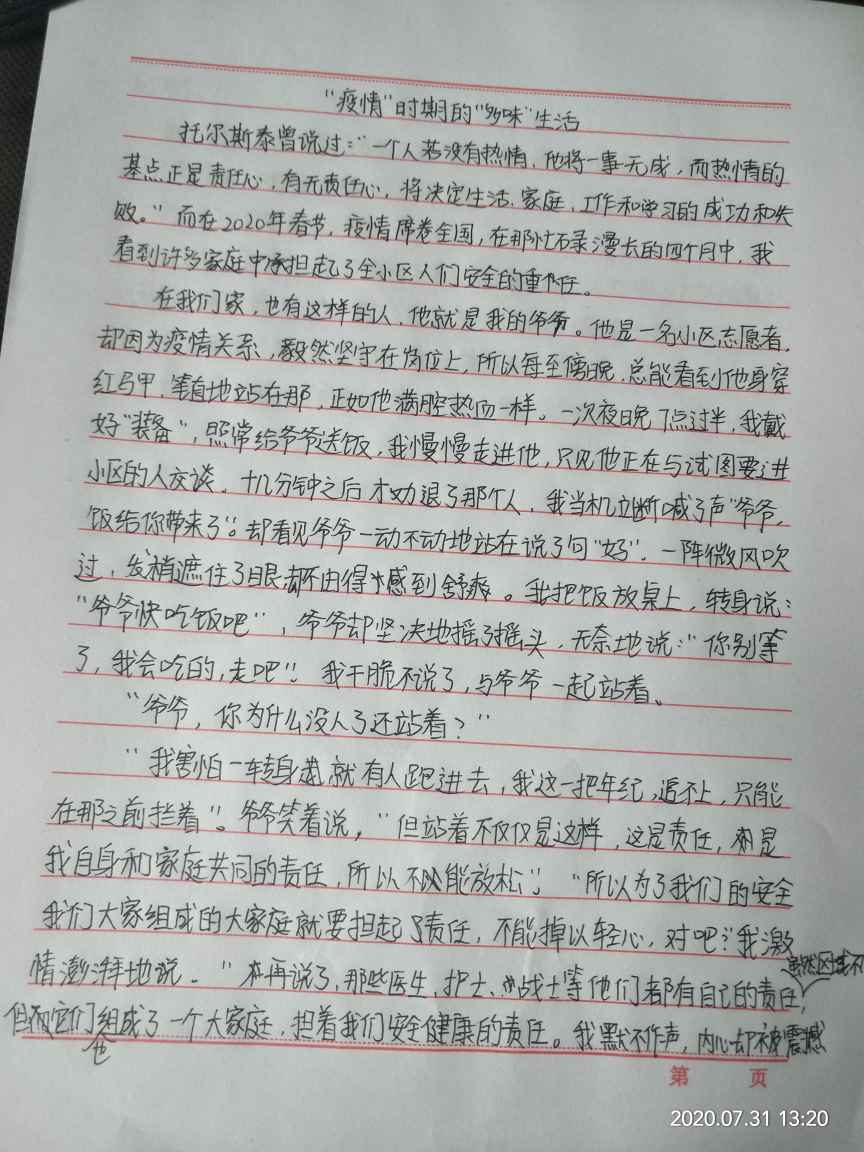 “疫情”时期的“多味”生活
托尔斯泰曾说过：“一个人若没有热情，他将一事无成，而热情的
基点正是责任心，有无责任心，将决定生活、家庭、工作和学习的成功和失
败。”而在2020年春节，疫情席卷全国，在那忙碌漫长的四个月中，我
看到许多家庭中承担起了全小区人们安全的重任。
在我们家，也有这样的人，他就是我的爷爷。他是一名小区志愿者，
却因为疫情关系，毅然坚守在岗位上，所以每至傍晚，总能看到他身穿
红马甲，笔直地站在那，正如他满腔热血一样。一次夜晚7点过半，我戴
好“装备”，照常给爷爷送饭，我慢慢走进他，只见他正在与试图要进
小区的人交谈，十几分钟之后才劝退了那个人，我当机立断喊了声“爷爷，
饭给你带来了”。却看见爷爷一动不动地站在说了句“好”。一阵微风吹
过，发梢遮住了眼却不由得感到舒爽。我把饭放桌上，转身说：
“爷爷快吃饭吧”，爷爷却坚决地摇了摇头，无奈地说：“你别等
了，我会吃的，走吧”！我干脆不说了，与爷爷一起站着。
“爷爷，你为什么没人了还站着？”
“我害怕一转身就有人跑进去，我这一把年纪，追不上，只能
在那之前拦着”。爷爷笑着说，“但站着不仅仅是这样，这是责任，是
我自身和家庭共同的责任，所以不能放松”！“所以为了我们的安全
我们大家组成的大家庭就要担起了责任，不能掉以轻心，对吧？我激
情澎湃地说。“再说了，那些医生、护士、战士等他们都有自己的责任，虽然区域不
但他们也组成了一个大家庭，担着我们安全健康的责任。我默不作声，内心却被震撼
第 页
2020.07.31 13:20